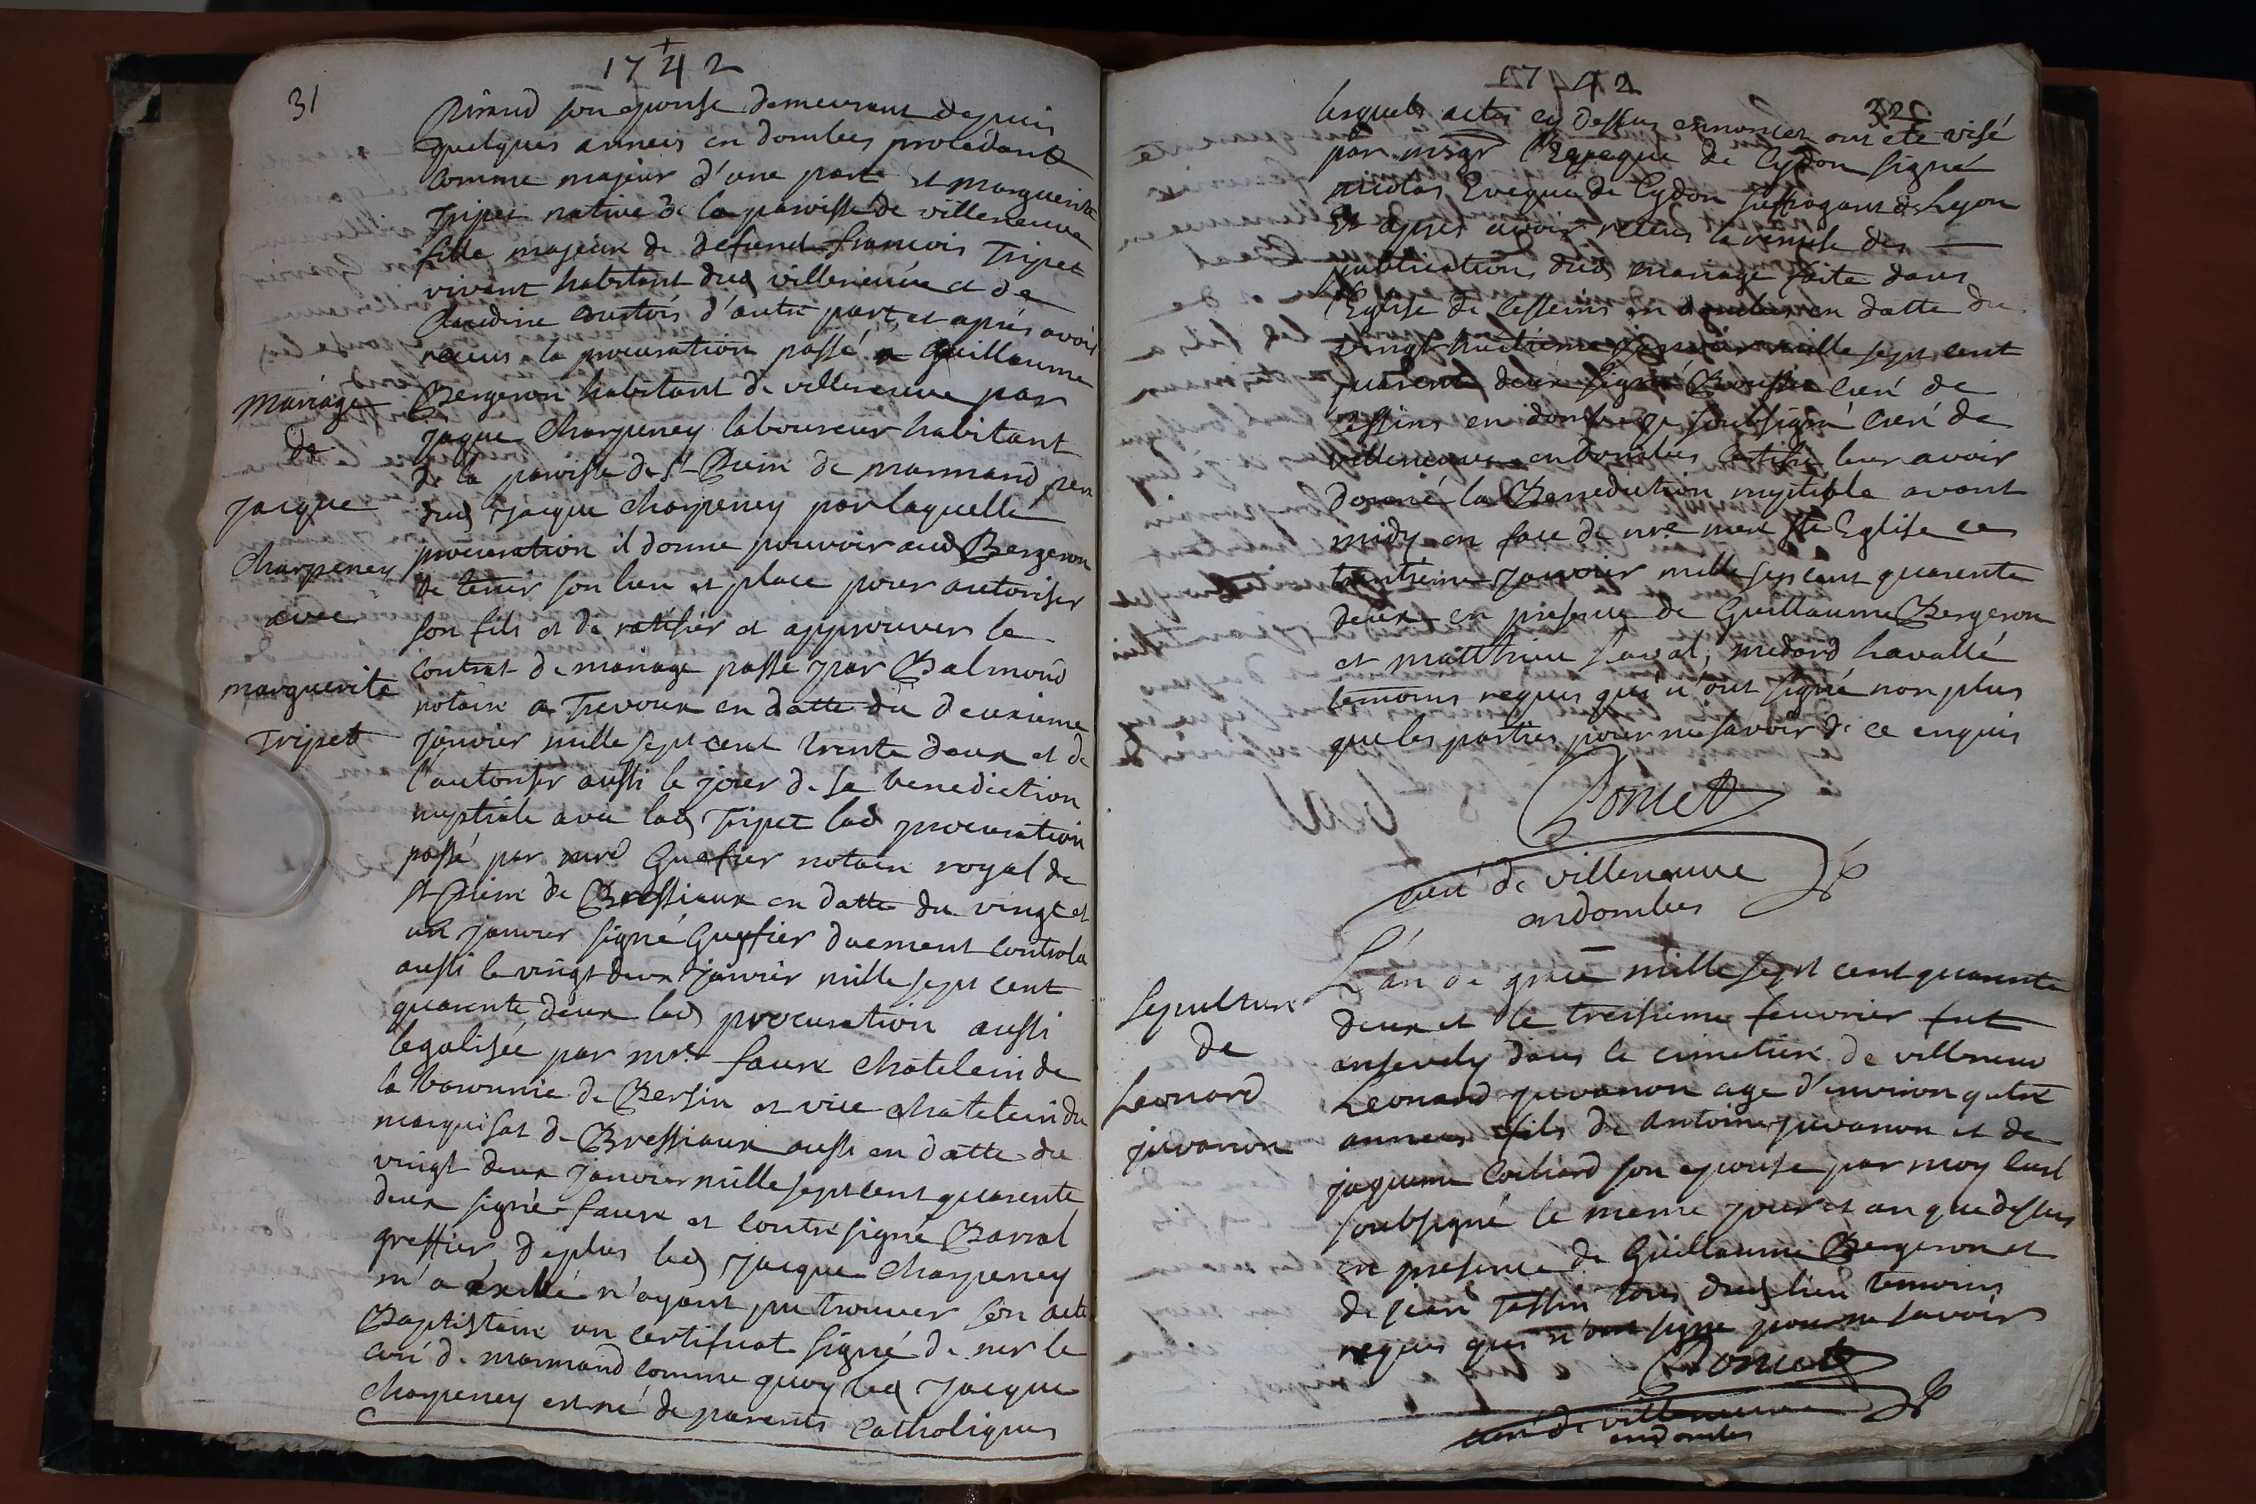 1742
31
Riraud son epouse demeurant depuis
quelques anneis en dombes procedant
comme majeur d'une part et marguerite
Tripet native de la paroisse de villeneuve
fille majeure de defunct francois Tripet
vivant habitant dud villeneuve et de
Claudine d'autre part, et aprés avoir
receus la procuration passé a Guillaume
Bergeron habitant de villeneuve par
jaque Charpeney laboureur habitant
de la paroisse de St de marnand pere
dud Jacque Charpeney par laquelle
procuration il donne pouvoir aud Bergeron
de tenir son lieu et place pour autoriser
son fils et de ratifier et approuver le
contrat de mariage passé par Balmond
notaire a Trevoux en datte du deuxieme
janvier mille sept cent trente deux et de
l'autoriser aussi le jour de sa benediction
nuptiale avec lad Tripet lad procuration
passé par Guefier notaire royal de
St de Bressieux en datte du vingt et
un janvier signé Guefier duement controla
aussi le vingt deux janvier mille sept cent
quarente deux lad procuration aussi
legalisée par mre faure châtelein de
la baronnie de Bersin et vice châtelein du
marquisat de Bressieux aussi en datte du
vingt deux janvier mille sept cent quarente
deux signé faure et contresigné Barral
greffier, de plus led Jacque Charpeney
m'a n'ayant pu trouver son acte
Baptistaire un certificat signé de mr le
curé de marnand comme quoy led Jacque
Charpeney est né de parents Catholiques
mariage
de
jacque
Charpeney
avec
marguerite
Tripet
1742
32
lesquels actes cy dessus ennoncez ont été visé
par msgr l'Eveque de Cydon signé
nicolas Eveque de Cydon suffragant de Lyon
Et apres avoir receus la remise des
publications dud mariage faite dans
l'Eglise de Cesseins en dombes en datte du
vingt huitieme janvier mille sept cent
quarente deux signé curé de
cesseins en dombes je soubsigné curé de
villeneuve en dombes certifie leur avoir
donné la Benediction nuptiale avant
midy en face de nre mere ste Eglise ce
trentieme janvoir mille sept cent quarente
deux en presence de Guillaume Bergeron
et matthieu, medard Lavallé
temoins requis qui n'ont signé non plus
que les parties pour ne savoir de ce enquis
Pomet
curé de villeneuve
en dombes
Sepulture
de
Leonard
juvanon
L'an de grace mille sept cent quarente
deux et le treisieme feuvrier fut
ensevely dans le cimetiere de villeneuve
Leonard juvanon age d'environ quatre
annees fils de Antoine juvanon et de
jaqueme son epouse par moy Curé
soubsigné le meme jour et an que dessus
en presence de Guillaume Bergeron et
de jean Tessin tous dud lieu temoins
requis qui n'ont signé pour ne savoir
Pomet
curé de villeneuve
en dombes